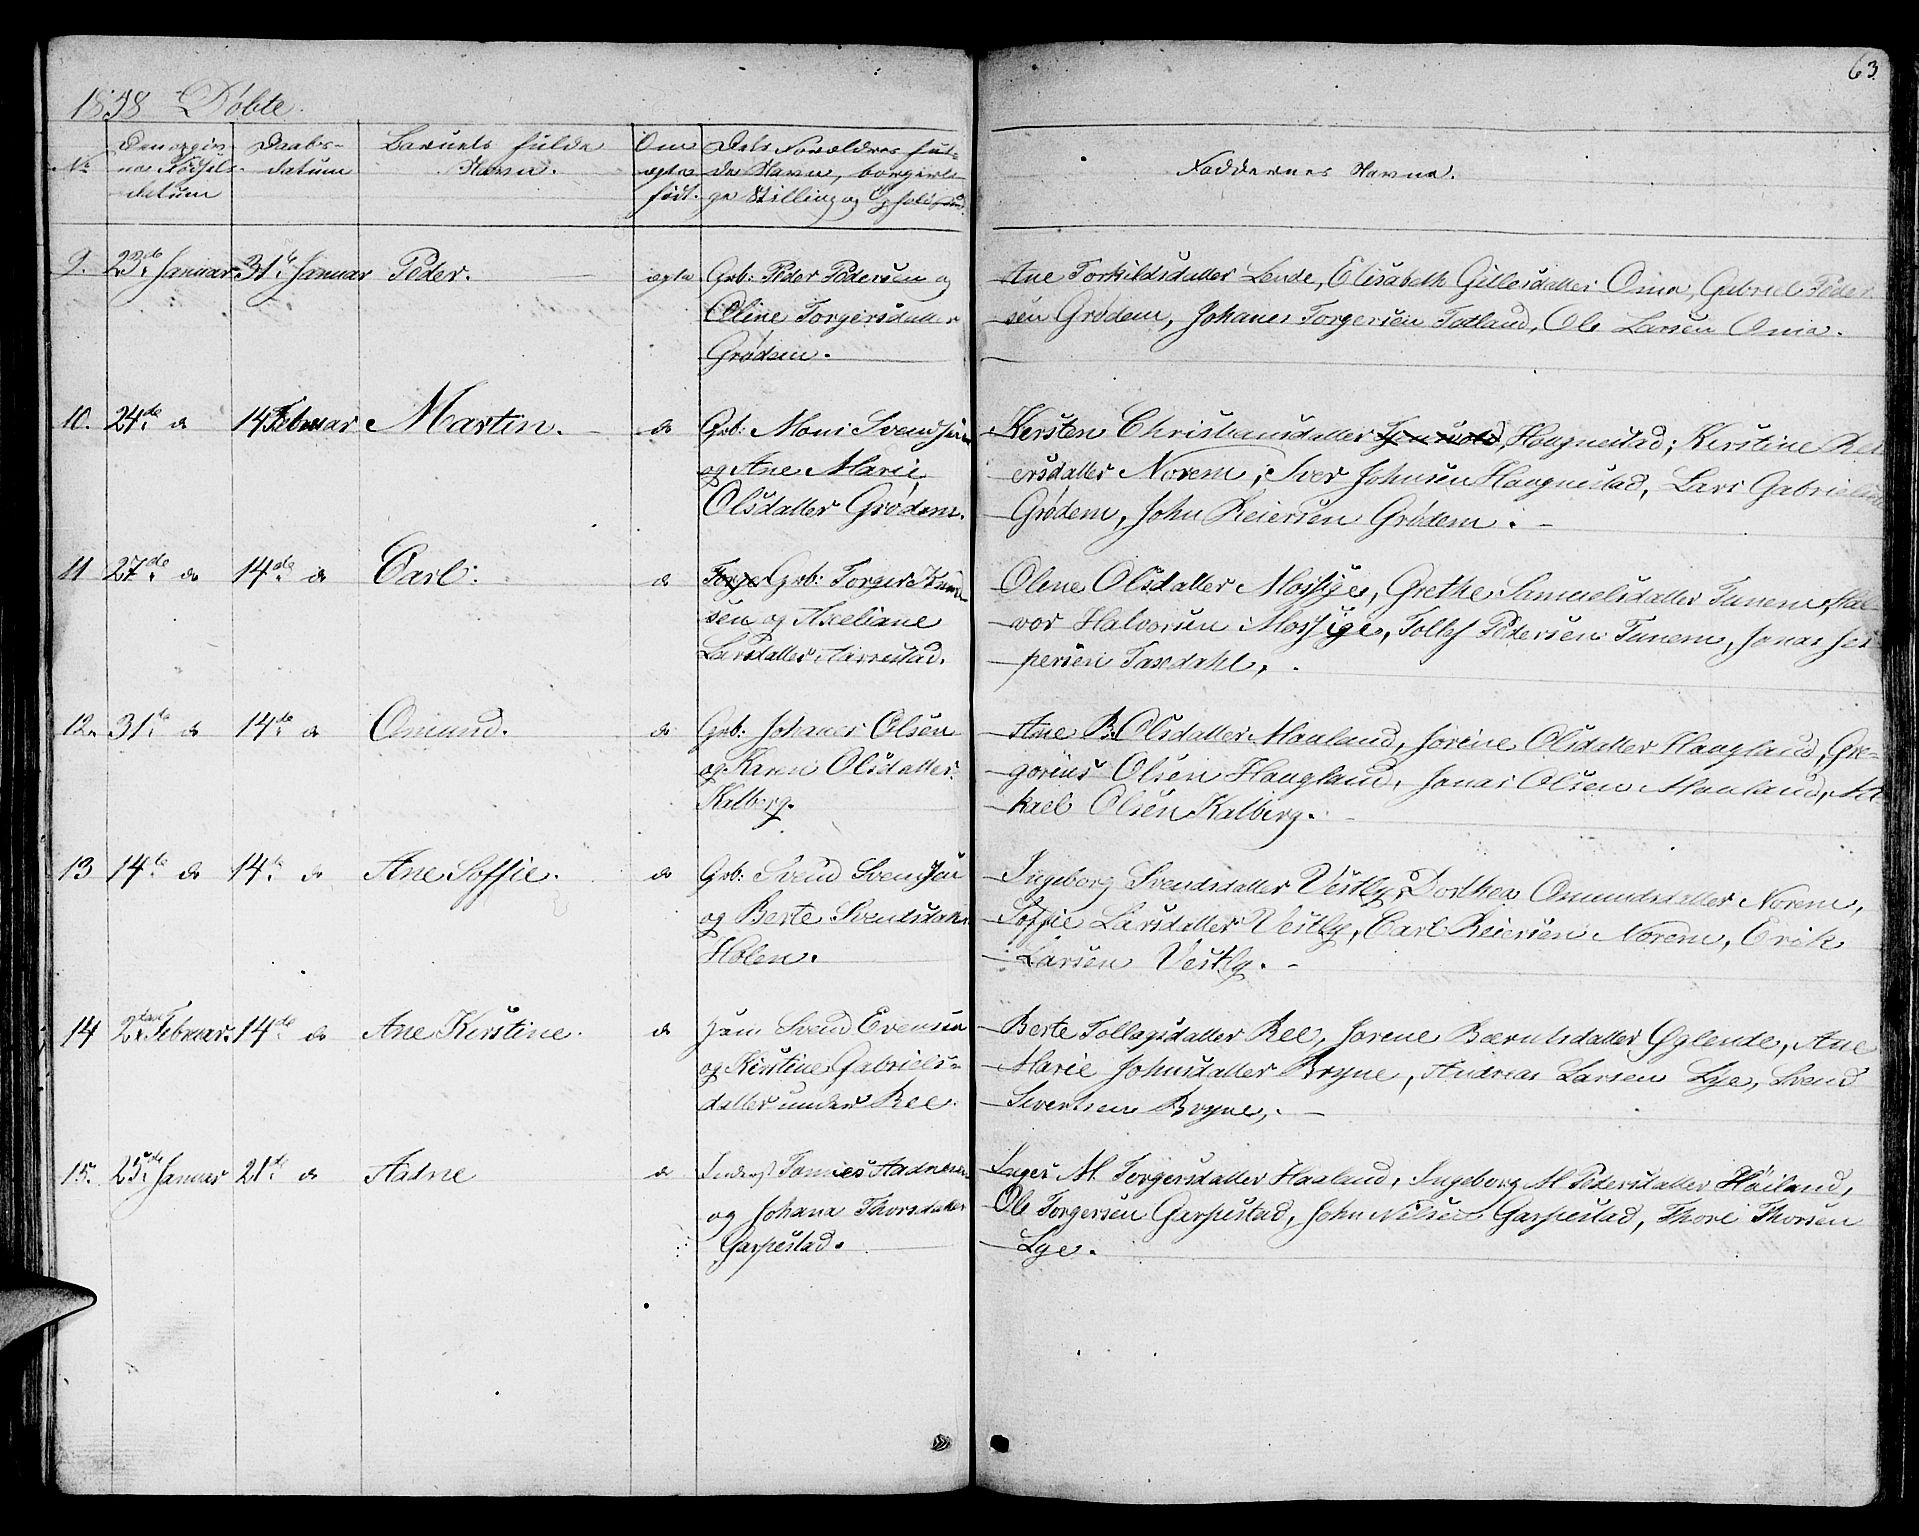 63.
1858 Döbte.
No
Den opgiv-
ne Födsels-
datum
Daabs-
datum
Barnets fulde
Navn.
Om
ægte
født.
Dets Forældres ful-
de Navn, borgerli-
ge Stilling og Opholdssted.
Faddernes Navne.
9. 23de Januar 31te Januar Peder. ægte Grb: Peder Pedersen og
Oline Torgersdatter
Grødem.
Ane Torkildsdatter Lende, Elisabeth Gillesdatter Oma, Gabriel Peder-
sen Grødem, Johanes Torgersen Totland, Ole Larsen Oma.
10. 24de do 14 Februar Martin. do Grb: Moni Svendsen
og Ane Marie
Olsdatter Grødem.
Kersten Christiansdatter Haugnestad; Kirstine Rei-
ersdatter Norem; Iver Johnsen Haugnestad, Lars Gabrielsen
Grødem, John Reiersen Grødem.
11 27de do 14de do Carl. do Torger Grb: Torger
sen og Axeliane
Larsdatter Aarrestad.
Olene Olsdatter Mossige, Grethe Samuelsdatter Tunem, Hal-
vor Halvorsen Mossige, Tollef Pedersen Tunem, Jonas Jes-
persen Taxdahl.
12. 31te do 14de do Omund. do Grb: Johanes Olsen
og Karen Olsdatter
Kalberg.
Ane B. Olsdatter Mauland, Jorine Olsdatter Haugland, Gre-
gorius Olsen Haugland, Jonas Olsen Mauland, Mi-
kael Olsen Kalberg.
13 14de do 14de do Ane Soffie. do Grb: Svend Svendsen
og Berte Svendsdatter
Holen.
Ingeborg Svendsdatter Vestly, Dorthea Omundsdatter Norem,
Soffie Larsdatter Vestly, Carl Reiersen Norem, Erik
Larsen Vestly.
14 2den Februar. 14de do Ane Kirstine. do Huusm Svend Evensen
og Kirstine Gabriels-
datter under Ree.
Berte Tollagsdatter Ree, Jorene Bærntsdatter Øglende, Ane
Marie Johnsdatter Bryne, Andreas Larsen Lye, Svend
Sivertsen Bryne.
15. 25de Januar 21de do Aadne do Inderst Tønnes Aadnesen
og Johana Thorsdatter
Garpestad.
Inger M. Torgersdatter Haaland, Ingeborg M Pedersdatter Höiland,
Ole Torgersen Garpestad, John Nilsen Garpestad, Thore Thorsen
Lye.